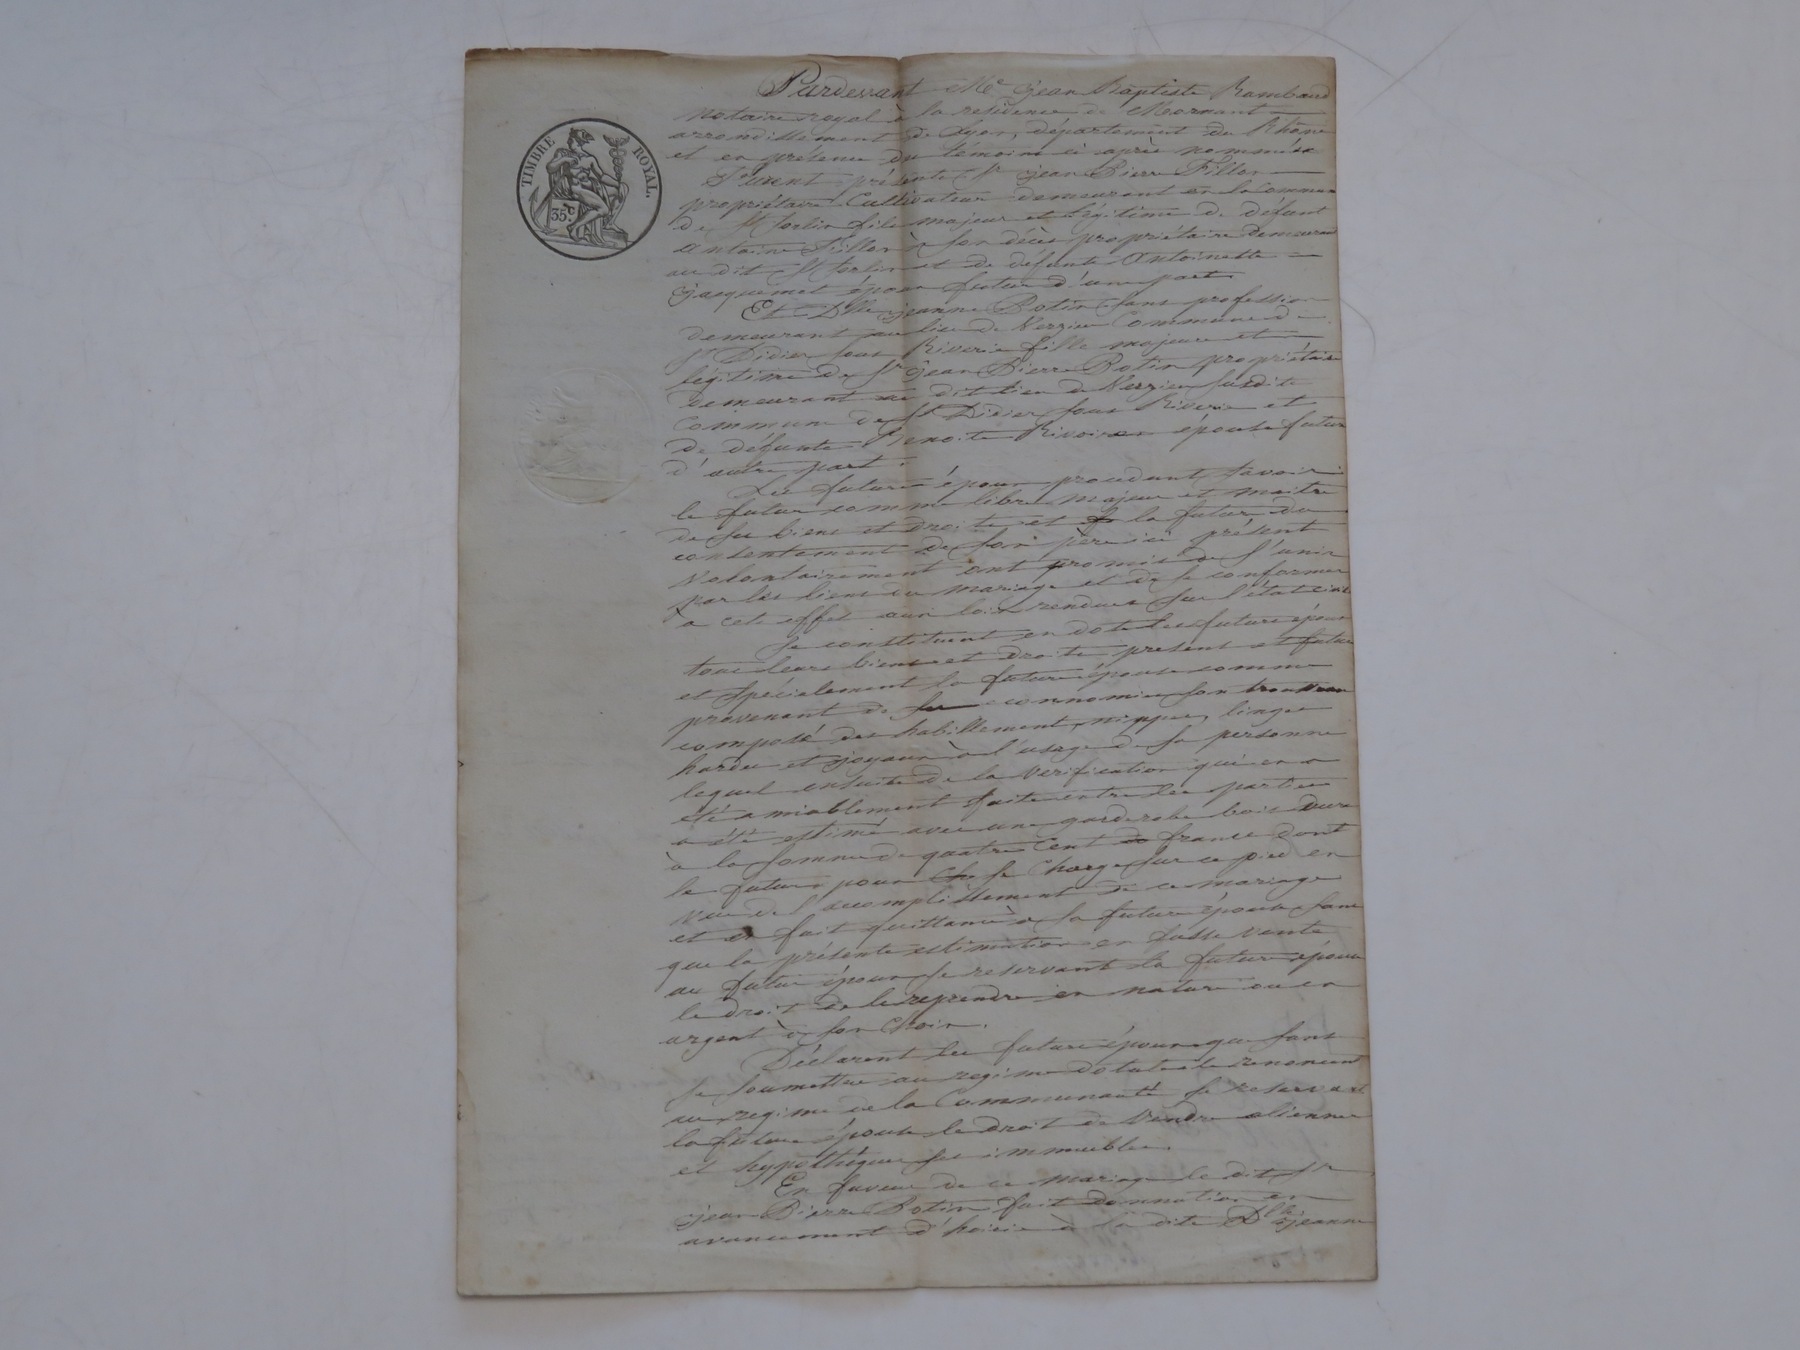 TIMBRE ROYAL.
35.c
Pardevant Me jean Baptiste Rambaud
notaire royal à la residence de Mornant
arrondissement de Lyon, département du Rhône
et en présence des témoins ci après nommés
furent présents Sr jean Pierre Fillon
propriétaire Cultivateur demeurant en la Commune
de St Sorlin fils majeur et légitime de défunt
antoine Fillon à son décès propriétaire demeurant
au dit St Sorlin et de défunte Antoinette
jacquemet époux futur d'une part.
Et Dlle jeanne Potin sans profession
demeurant au lieu de Verzieu Commune de
St Didier sous Riverie fille majeure et
légitime de Sr jean Pierre Potin propriétaire
demeurant au dit lieu de Verzieu susdite
Commune de St Didier sous Riverie et
de défunte Benoite Rivoire épouse future
d'autre part.
Les futurs époux procedants savoir
le futur comme libre majeur et maitre
de ses biens et droits et la future du
consentement de son père ici présent
volontairement ont promis de s'unir
par les liens du mariage et de se conformer
a cet effet aux lois rendues sur l'état civil
Se constituent en dote les futurs époux
tous leurs biens et droits present et futurs
et spécialement la future épouse comme
provenant de ses economies son trousseau
composé des habillement, nippes, linges
hardes et joyaux à l'usage de sa personne
lequel ensuite de la verification qui en a
été amiablement faite entre les parties
a été estimé avec une garderobe bois dure
à la somme de quatre Cent francs dont
le futur époux se charge sur ce pied en
vue de l'accomplissement de ce mariage
et en fait quittance à la future épouse sans
que la présente estimation en fasse vente
au futur époux se reservant la future épouse
le droit de le reprendre en nature ou en
argent à son Choix.
Déclarent les futurs époux que sans
se soumettre au regime dotal ils renoncent
au regime de la Communauté se reservant
la future épouse le droit de vendre aliener
et hypothéquer ses immeubles.
En faveur de ce mariage le dit Sr
jean Pierre Potin fait donnation en
avancement d'hoirie à la dite Dlle jeanne